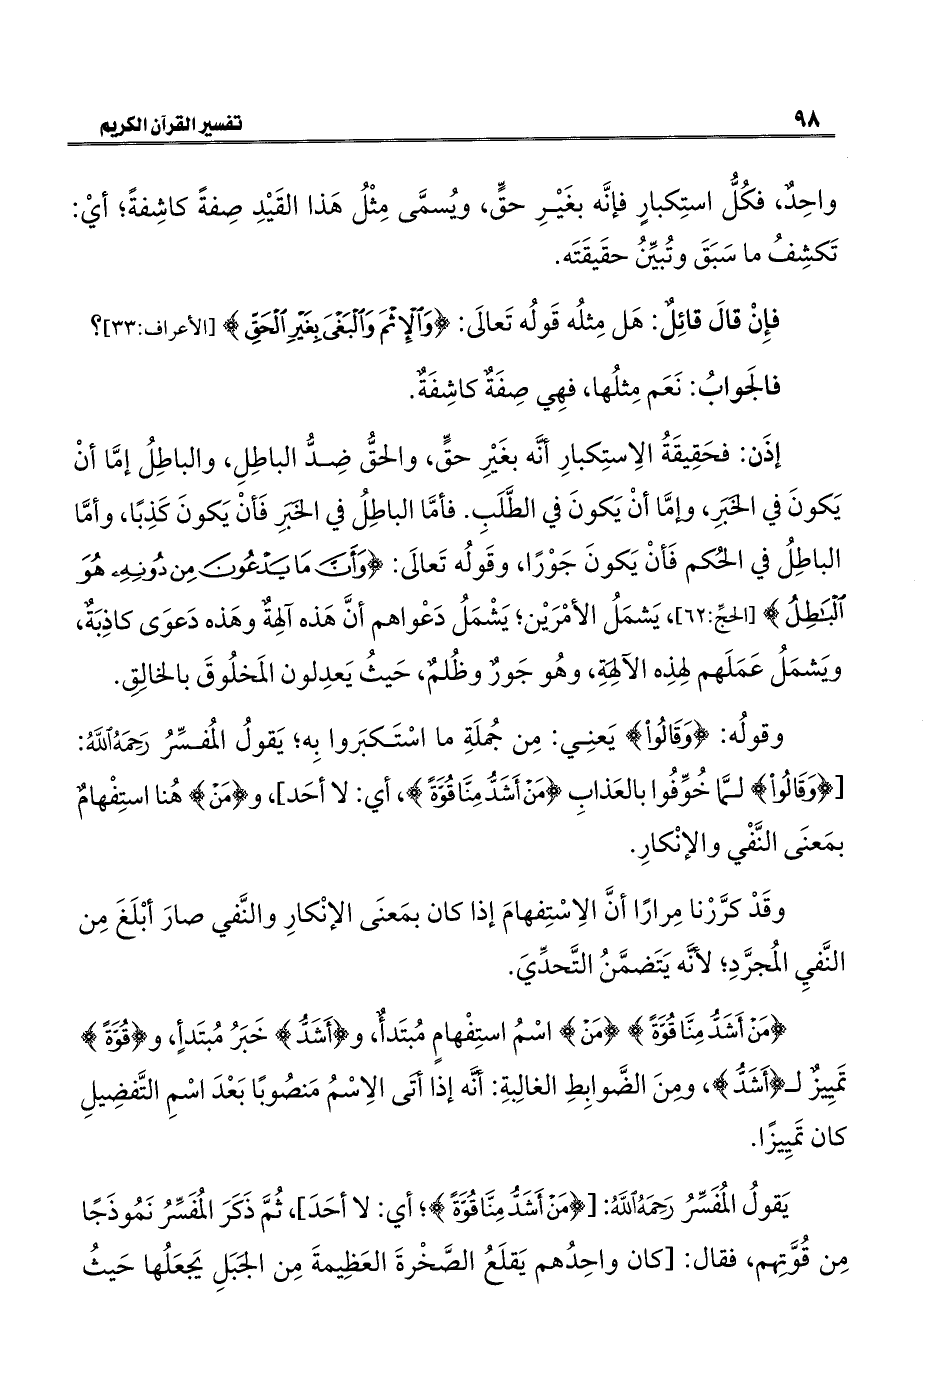 ٩٨ تفسير القرآن الكريم
واحِدٌ، فكُلُّ استِكبارٍ فإنَّه بغَيْرِ حقٍّ، ويُسمَّى مِثْلُ هَذا القَيْدِ صِفةً كاشِفةً؛ أيْ:
تَكشِفُ ما سَبَقَ وتُبيِّنُ حقيقَتَه.
فإِنْ قالَ قائِلٌ: هَل مِثلُه قَولُه تَعالَى: ﴿وَٱلْإِثْمَ وَٱلْبَغْىَ بِغَيْرِ ٱلْحَقِّ﴾ [الأعراف:٣٣]؟
فالجَوابُ: نَعَم مِثلُها، فهِي صِفَةٌ كاشِفَةٌ.
إذَن: فحَقِيقَةُ الِاستِكبارِ أنَّه بغَيْرِ حقٍّ، والحقُّ ضِدُّ الباطِلِ، والباطِلُ إمَّا أنْ
يَكونَ في الخَبَرِ، وإمَّا أنْ يَكونَ في الطَّلَبِ. فأمَّا الباطِلُ في الخَبَرِ فَأنْ يَكونَ كَذِبًا، وأمَّا
الباطِلُ في الحُكمِ فَأنْ يَكونَ جَوْرًا، وقَولُه تَعالَى: ﴿وَأَنَّ مَا يَدْعُونَ مِن دُونِهِۦ هُوَ
ٱلْبَٰطِلُ﴾ [الحجِّ:٦٢]، يَشمَلُ الأمْرَيْن؛ يَشْمَلُ دَعْواهم أنَّ هَذه آلِهةٌ وهَذه دَعوَى كاذِبَةٌ،
ويَشمَلُ عَمَلَهم لهِذِه الآلِهَةِ، وهُو جَورٌ وظُلمٌ، حَيثُ يَعدِلون المَخلُوقَ بالخالِقِ.
وقولُه: ﴿وَقَالُوا۟﴾ يَعنِي: مِن جُملَةِ ما اسْتَكبَروا بِه؛ يَقولُ المُفسِّرُ رَحِمَهُ ٱللَّهُ:
[﴿وَقَالُوا۟﴾ لـمَّا خُوِّفُوا بالعَذابِ ﴿مَنْ أَشَدُّ مِنَّا قُوَّةً﴾، أي: لا أحَد]، و﴿مَنْ﴾ هُنا استِفْهامٌ
بمَعنَى النَّفْي والإنْكارِ.
وقَدْ كرَّرْنا مِرارًا أنَّ الِاسْتِفهامَ إذا كان بمَعنَى الإنْكار والنَّفي صارَ أبْلَغَ مِن
النَّفيِ المُجرَّدِ؛ لأنَّه يَتَضمَّنُ التَّحدِّيَ.
﴿مَنْ أَشَدُّ مِنَّا قُوَّةً﴾ ﴿مَنْ﴾ اسْمُ استِفْهامٍ مُبتَدأٌ، و﴿أَشَدُّ﴾ خَبَرُ مُبتَدأٍ، و﴿قُوَّةً﴾
تَميِيزٌ لـ﴿أَشَدُّ﴾، ومِنَ الضَّوابِطِ الغالِبةِ: أنَّه إذا أتَى الِاسْمُ مَنصُوبًا بَعْدَ اسْمِ التَّفضِيلِ
كان تَميِيزًا.
يَقولُ المُفَسِّرُ رَحِمَهُ ٱللَّهُ: [﴿مَنْ أَشَدُّ مِنَّا قُوَّةً﴾؛ أي: لا أحَدَ]، ثُمَّ ذَكَرَ المُفَسِّرُ نَمُوذَجًا
مِن قُوَّتِهِم، فقال: [كان واحِدُهم يَقلَعُ الصَّخْرةَ العَظِيمةَ مِن الجَبَلِ يَجعَلُها حَيثُ